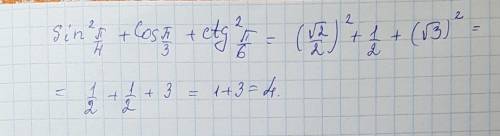 Sin² π/4 + Cos π/3 + ctg² π/6 = (√2/2)² + 1/2 + (√3)² =
= 1/2 + 1/2 + 3 = 1+3=4.